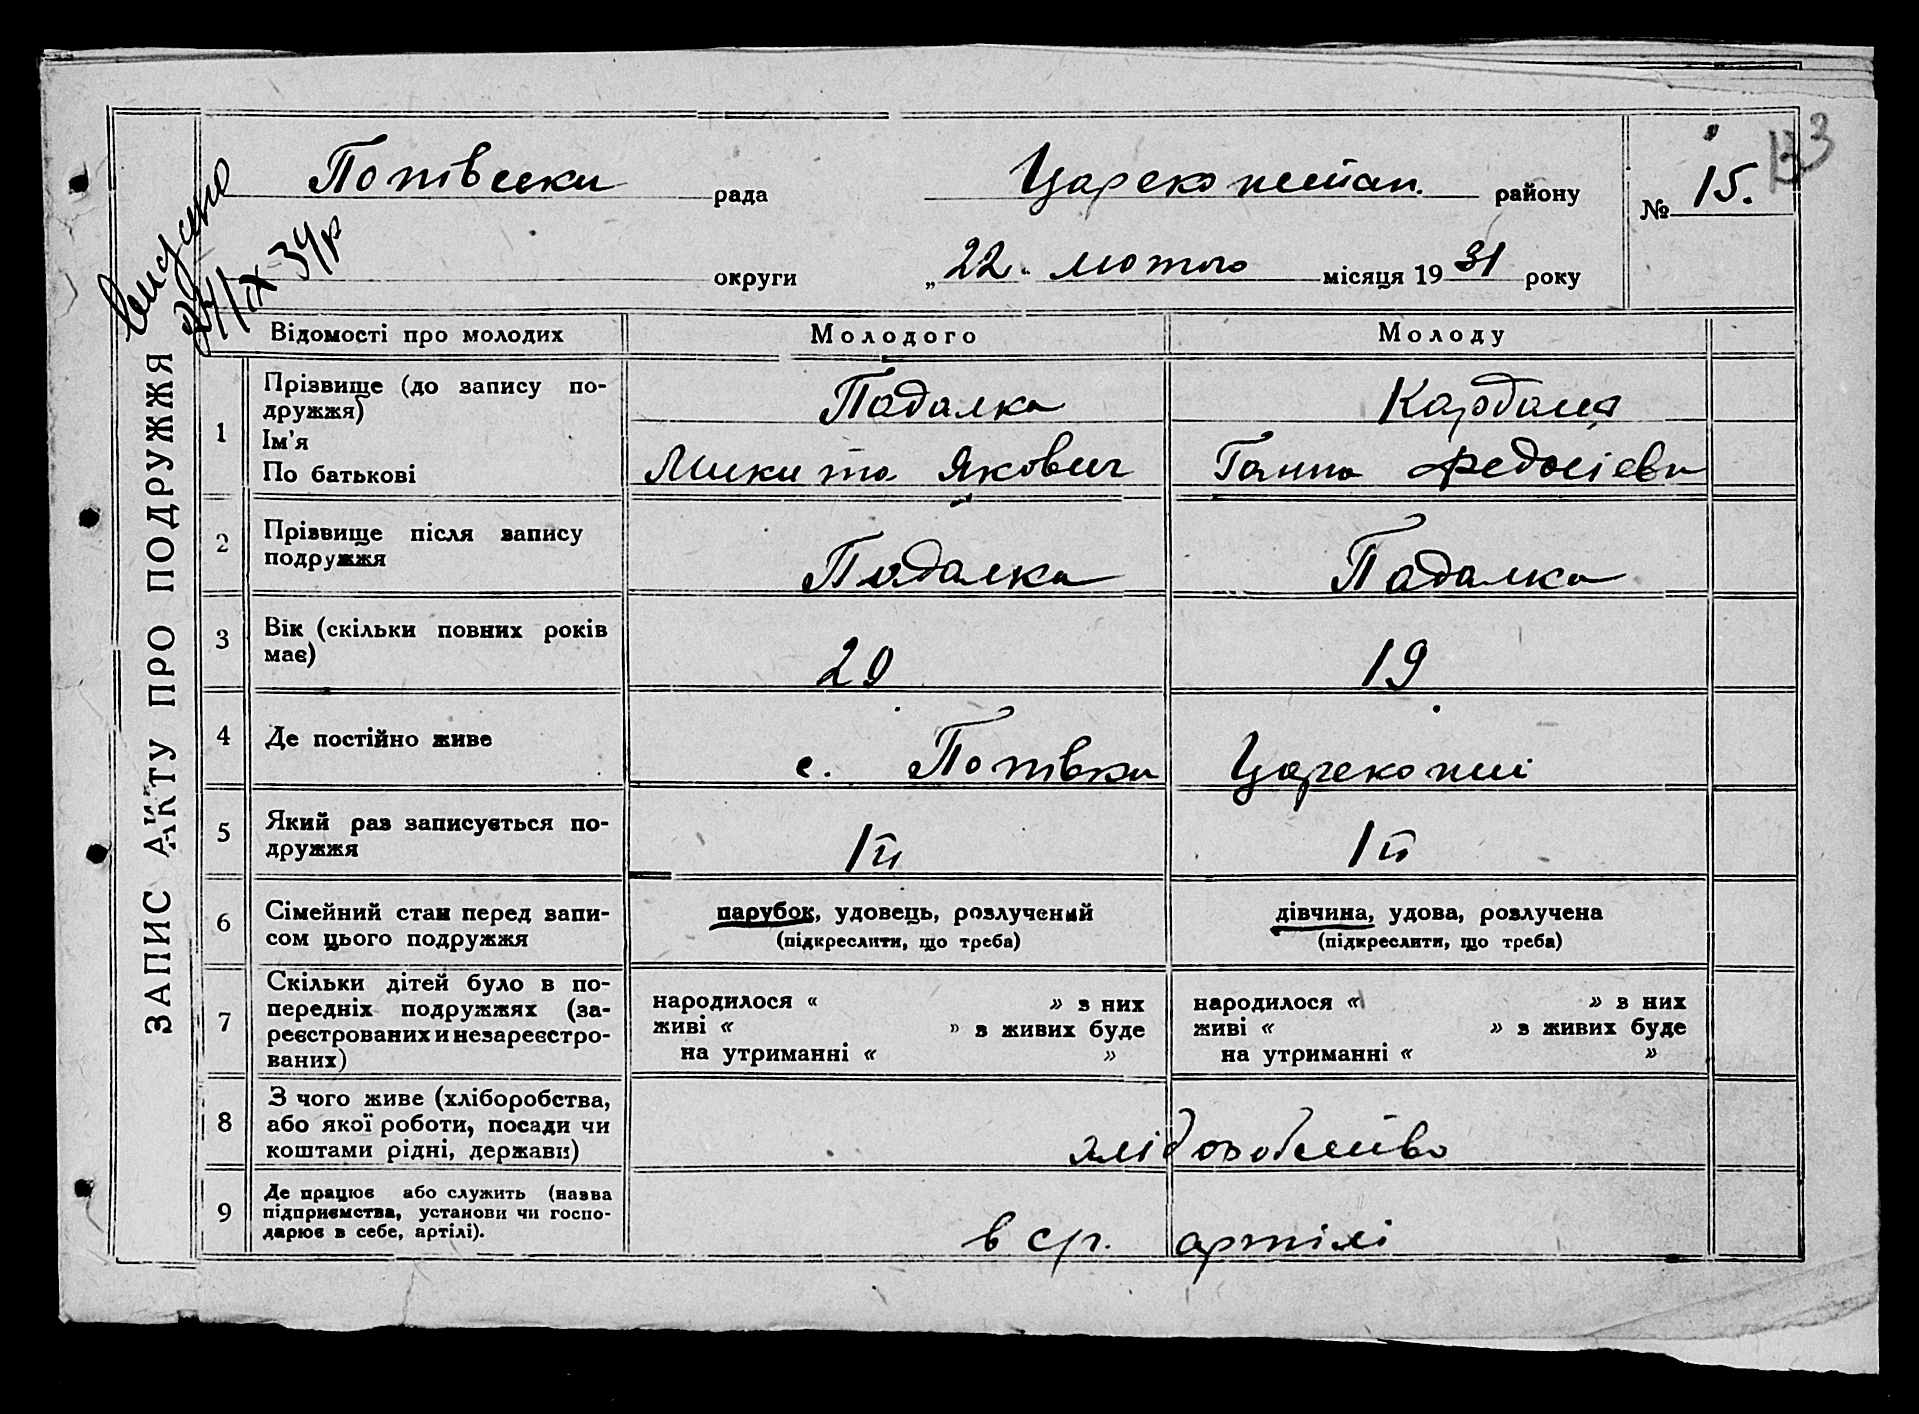 133
Потівська рада Царекопстан. району № 15.
округи „22" лютого місяця 1931 року
ЗАПИС АКТУ ПРО ПОДРУЖЖЯ
Відомості про молодих Молодого Молоду
1 Прізвище (до запису по-
дружжя) Падалка
Ім'я
По батькові Микита Якович Ганна Федосієвн
2 Прізвище після запису
подружжя Падалка Падалка
3 Вік (скільки повних років
має) 20 19
4 Де постійно живе с. Потівки
5 Який раз записується по-
дружжя 1й 1й
6 Сімейний стан перед запи-
сом цього подружжя
парубок, удовець, розлучений
(підкреслити, що треба)
дівчина, удова, розлучена
(підкреслити, що треба)
7 Скільки дітей було в по-
передніх подружжях (за-
реєстрованих и незареєстро-
ваних)
народилося « » з них
живі « » з живих буде
на утриманні « »
народилося « » з них
живі « » з живих буде
на утриманні « »
8 З чого живе (хліборобства,
або якої роботи, посади чи
коштами рідні, держави) хліборобство
9 Де працює або служить (назва
підприємства, установи чи госпо-
дарює в себе, артілі). в ср. артілі